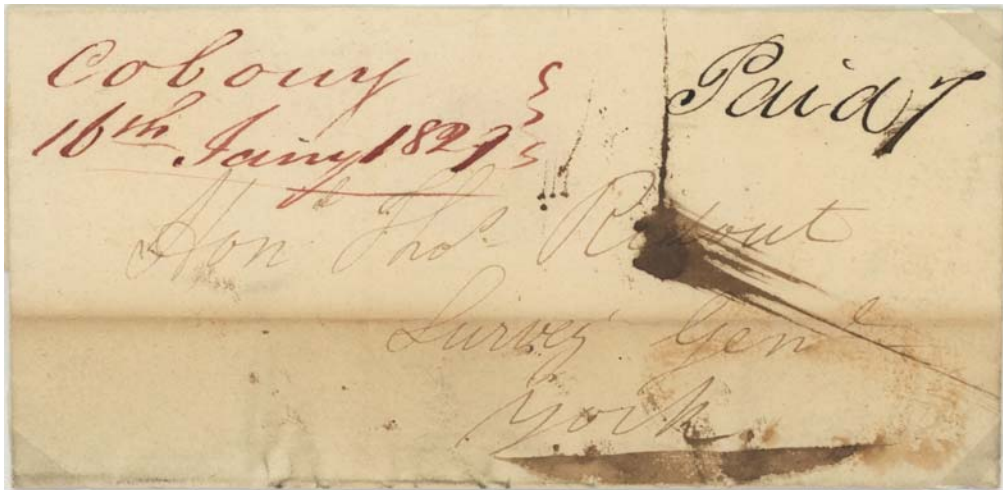 Cobourg
16th Jany 1827
Paid 7
Hon Thos Ridout
Survey Genl
York